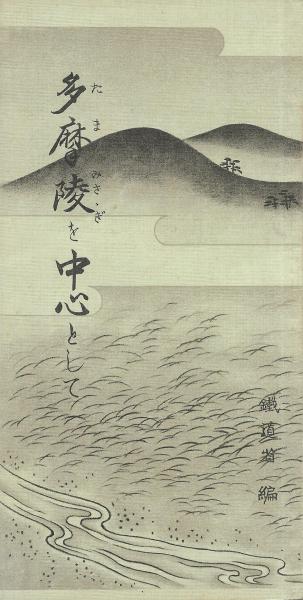 多摩陵を中心として
たまみさゝぎ
鐵道省編